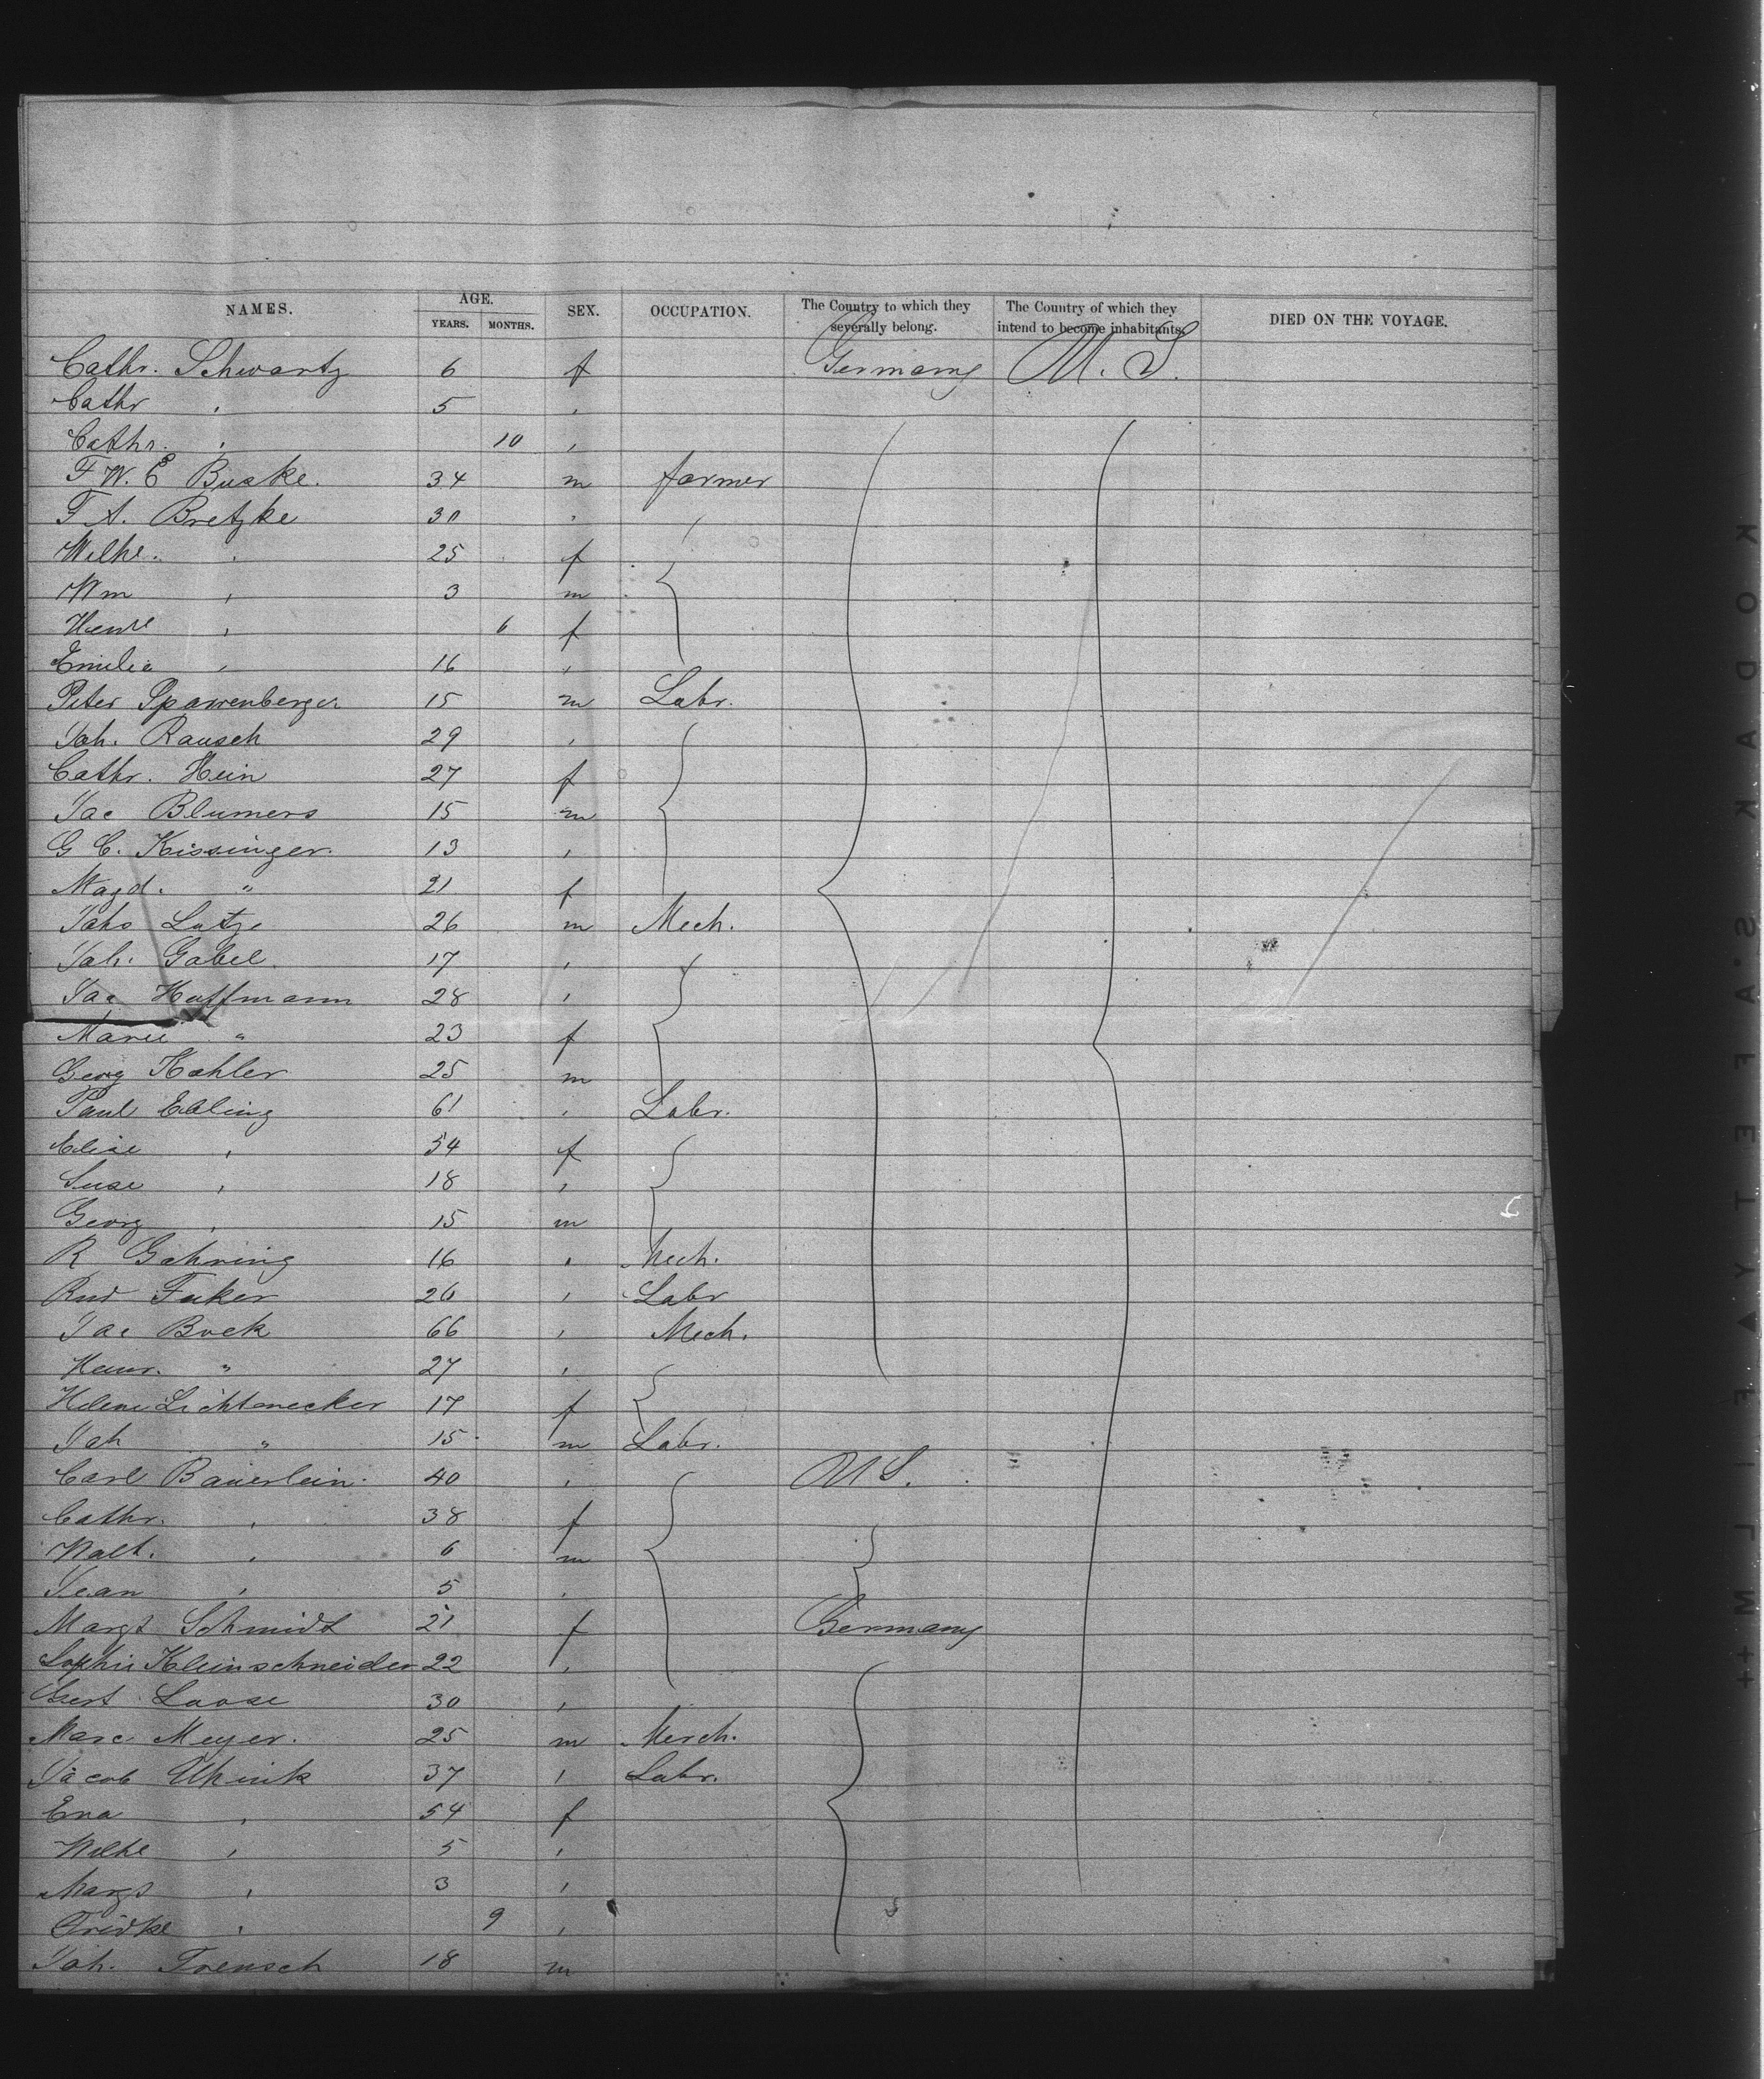 NAMES. AGE. SEX. OCCUPATION. The Country to which they severally belong. The Country of which they intend to become inhabitants. DIED ON THE VOYAGE.
YEARS. MONTHS.
Cathr. Schwartz 6 f Germany U. S.
Cathr " 5 "
Cathr. " 10 "
F. W. E Buske. 34 m farmer
F A. Bretzke 30 "
Wilhe. " 25 f
Wm " 3 m
Henre " 6 f
Emilie " 16 "
Peter Sparrenberger 15 m Labr.
Joh. Rausch 29 "
Cathr. Hein 27 f
Jac Blumers 15 m
G C. Kissinger. 13 "
Magd. " 21 f
Johs Lutze 26 m Mech.
Joh. Gabel 17 "
Jac Hoffmann 28 "
Marie " 23 f
Georg Kohler 25 m
Paul Ebling 61 " Labr.
Elise " 54 f
Suse " 18 "
Georg " 15 m
R Gahring 16 " Mech.
Rud Fuker 26 " Labr
Jac Bock 66 " Mech.
Heinr. " 27 "
Helene Lichtenecker 17 f
Joh " 15 m Labr.
Carl Bäuerlein 40 " U S.
Cathr. " 38 f
Walt. " 6 m
Jean " 5 "
Margt Schmidt 21 f Germany
Sophie Kleinschneider 22 "
Gert Loose 30 "
Marc Meyer. 25 m Merch.
Jacob Uhink 37 " Labr.
Ena " 54 f
Wilhe " 5 "
Margt " 3 "
Fridke " 9 "
Joh. Frensch 18 m
KODAK·S·AFETY▲FILM++